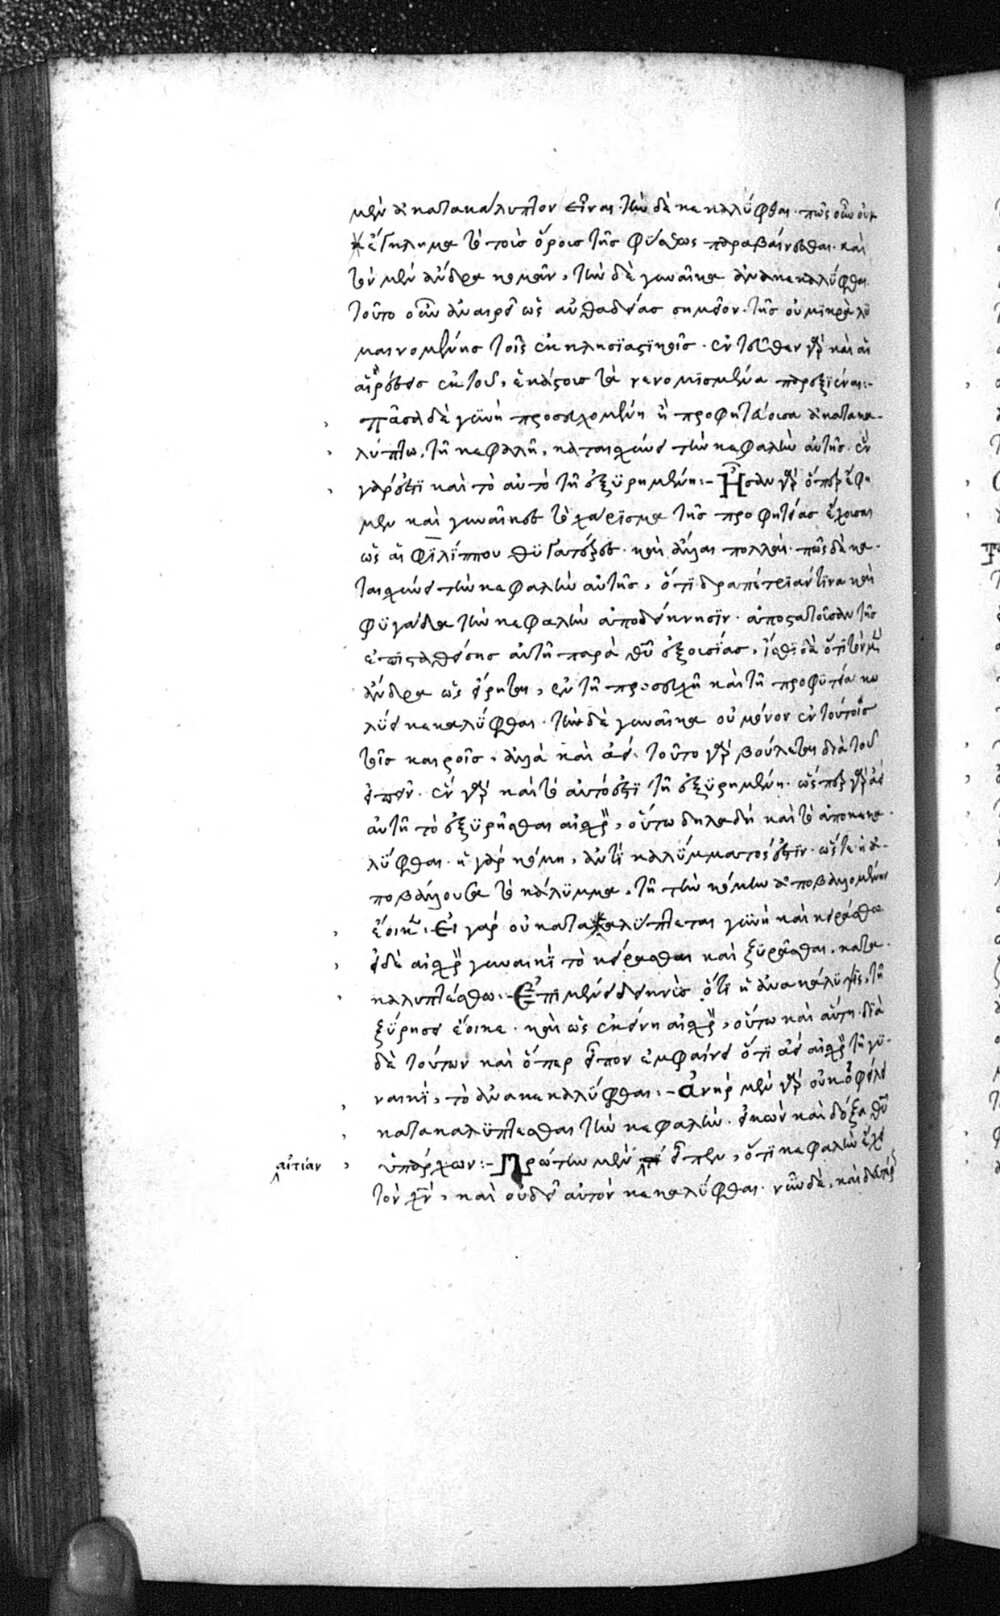 μὲν ἀκατακάλυπτον εἶναι· τὴν δὲ κεκαλύφθαι· πῶς οὖν οὐκ
ἔγκλημα τὸ τοῖς ὅροις τῆς φύσεως παραβαίνεσθαι· καὶ
τὸν μὲν ἄνδρα κομᾶν, τὴν δὲ γυναῖκα ἀνακεκαλύφθαι
τοῦτο οὖν ἀναιρεῖ ὡς αὐθαδείας σημεῖον· τῆς οὐ μικρὰ λυ
μαινομένης τοῖς ἐκκλησιαστικοῖς· ἐντεῦθεν γὰρ καὶ αἱ
αἱρέσεις ἐκ τοῦ, ἑκάστοις τὰ νενομισμένα παρεξϊέναι:-
πᾶσα δὲ γυνὴ προσευχομένη ἢ προφητεύουσα ἀκατακα-
λύπτῳ, τῇ κεφαλῇ, καταισχύνει τὴν κεφαλὴν αὐτῆς· ἓν
γάρ ἐστϊ καὶ τὸ αὐτὸ τῇ ἐξϋρημένῃ:- Ἦσαν γὰρ ὅπερ ἔφη
μεν καὶ γυναῖκες τὸ χάρϊσμα τῆς προφητείας ἔχουσαι
ὡς αἱ Φιλίππου θϋγατέρες· καὶ ἄλλαι πολλαί· πῶς δὲ κα-
ταισχύνει τὴν κεφαλὴν αὐτῆς, ὅτϊ δραπέτϊν τινα καὶ
φϋγάδα τὴν κεφαλὴν ἀποδείκνυσϊν· ἀποστατοῦσαν τῆς
ἐπισταθείσης αὐτῇ παρὰ θῦ ἐξουσίας, ἴσθϊ δὲ ὅτϊ τὸν μὲν
ἄνδρα ὡς εἴρηται, ἐν τῇ προσευχῇ καὶ τῇ προφητεία κω
λύει κεκαλύφθαι· τὴν δὲ γυναῖκα οὐ μόνον ἐν τούτοις
τοῖς καιροῖς, ἀλλὰ καὶ ἀεί· τοῦτο γὰρ βούλεται διὰ τοῦ
εἰπεῖν· ἓν γὰρ καὶ τὸ αὐτό ἐστϊ τῇ ἐξϋρημένῃ· ὥσπερ γὰρ ἀεὶ
αὐτῇ τὸ ἐξϋρῆσθαι αἰσχρὸν, οὕτω δηλαδὴ καὶ τὸ ἀποκεκα-
λύφθαι· ἡ γὰρ κόμη, ἀντὶ καλύμματός ἐστϊν· ὥστε ἡ ἀ-
ποβάλλουσα τὸ κάλυμμα, τῇ τὴν κόμην ἀποβαλλομένῃ
ἔοικεν· Εἰ γὰρ οὐ κατακαλύπτεται γυνὴ καὶ κειράσθω
εἰ δὲ αἰσχρὸν γυναικὶ τὸ κείρασθαι καὶ ξϋρᾶσθαι, κατα-
καλυπτέσθω:- Ἐπιμένει δεικνὺς ὅτϊ ἡ ἀνακάλυψις, τῇ
ξύρησει ἔοικε· καὶ ὡς ἐκείνη αἰσχρὸν, οὕτω καὶ αὕτη· διὰ
δὲ τούτων καὶ ὅπερ εἶπον ἐμφαίνει ὅτϊ ἀεὶ αἰσχρὸν τῇ γυ-
ναικί, τὸ ἀνακεκαλύφθαι:- Ἀνὴρ μὲν γὰρ οὐκ ὀφείλει
κατακαλύπτεσθαι τὴν κεφαλὴν· εἰκὼν καὶ δόξα θῦ
ὑπάρχων:- Πρώτην μὲν εἶπεν, ὅτι κεφαλὴν ἔχει
αἰτίαν
τὸν χν, καὶ οὐ δεῖ αὐτὸν κεκαλύφθαι· νῦν δὲ, καὶ δευτέρ